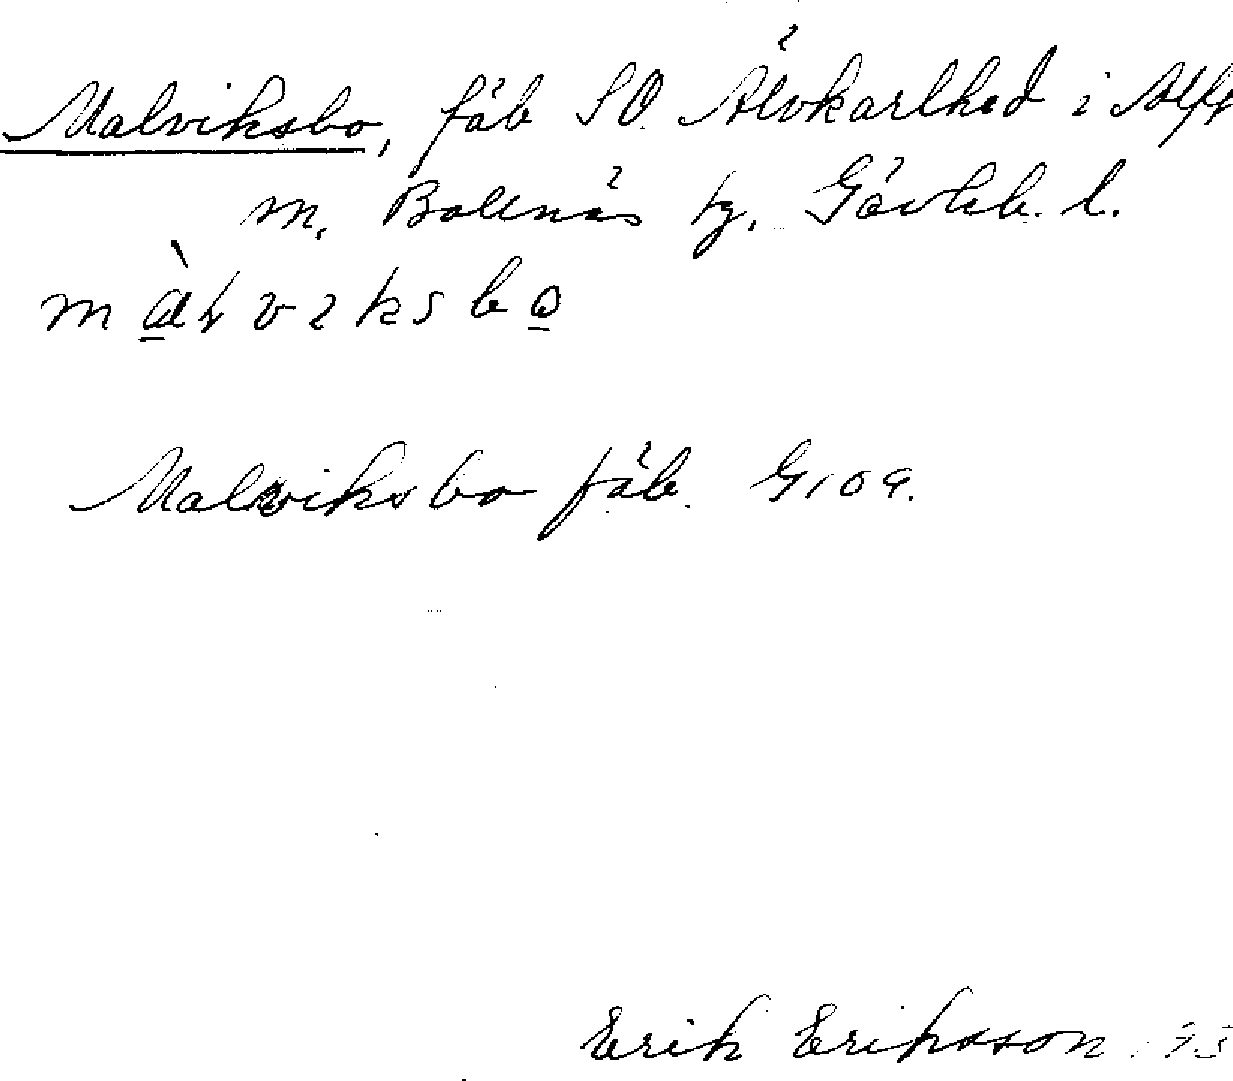 Malviksbo, fäb SO Älvkarlhed i Alft
m. Bollnäs tg, Gävleb. l.
Malviksbo fäb. G109.
Erik Eriksson